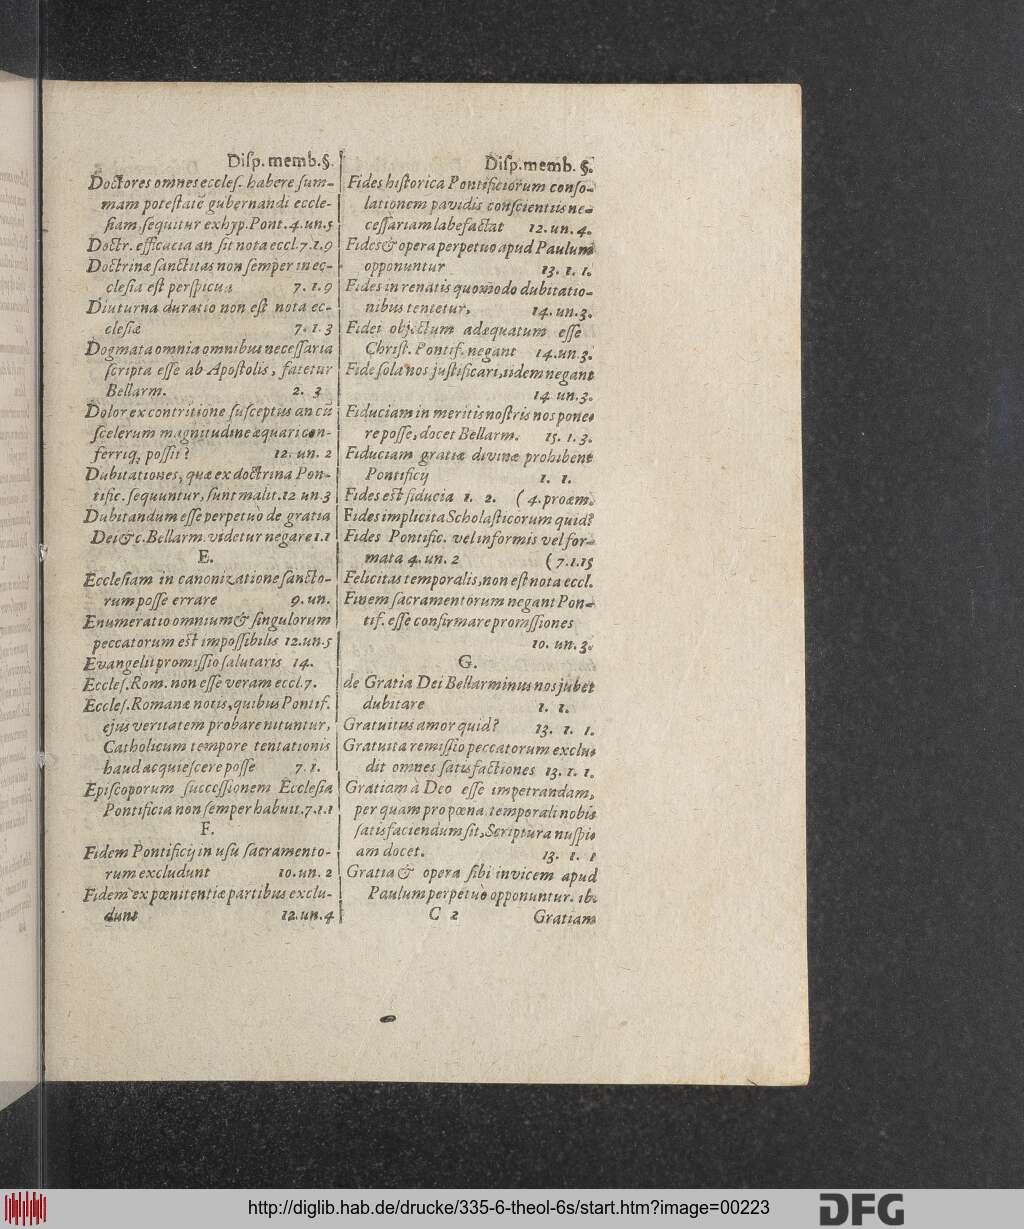 Disp. memb. §.
Doctores omnes eccles. habere sum-
mam potestatē gubernandi eccle-
siam, sequitur ex hyp. Pont. 4. un. 5
Doctr. efficacia an sit nota eccl. 7. 1. 9
Doctrinæ sanctitas non semper in ec-
clesia est perspicua 7. 1. 9
Diuturna duratio non est nota ec-
clesiæ 7. 1. 3
Dogmata omnia omnibus necessaria
scripta esse ab Apostolis, fatetur
Bellarm. 2. 3
Dolor ex contritione susceptus an cū
scelerum magnitudine æquari con-
ferriq; possit? 12. un. 2
Dubitationes, quæ ex doctrina Pon-
tific. sequuntur, sunt malit. 12 un. 3
Dubitandum esse perpetuò de gratia
Dei &c. Bellarm. videtur negare 1. 1
E.
Ecclesiam in canonizatione sancto-
rum posse errare 9. un.
Enumeratio omnium & singulorum
peccatorum est impossibilis 12. un. 5
Evangelii promissio salutaris 14.
Eccles. Rom. non esse veram eccl. 7.
Eccles. Romanæ notis, quibus Pontif.
ejus veritatem probare nituntur,
Catholicum tempore tentationis
haud acquiescere posse 7. 1.
Episcoporum successionem Ecclesia
Pontificia non semper habuit. 7. 1. 1
F.
Fidem Pontificij in usu sacramento-
rum excludunt 10. un. 2
Fidem ex pœnitentiæ partibus exclu-
dunt 12. un. 4
Disp. memb. §.
Fides historica Pontificiorum conso-
lationem pavidis conscientiis ne-
cessariam labefactat 12. un. 4.
Fides & opera perpetuo apud Paulum
opponuntur 13. 1. 1.
Fides in renatis quomodo dubitatio-
nibus tentetur, 14. un. 3.
Fidei objectum adæquatum esse
Christ. Pontif. negant 14. un. 3.
Fide sola nos justificari, iidem negant
14 un. 3.
Fiduciam in meritis nostris nos pone-
re posse, docet Bellarm. 15. 1. 3.
Fiduciam gratiæ divinæ prohibent
Pontificij 1. 1.
Fides est fiducia 1. 2. (4. proœm.
Fides implicita Scholasticorum quid?
Fides Pontific. vel informis vel for-
mata 4. un. 2 (7. 1. 15
Felicitas temporalis, non est nota eccl.
Finem sacramentorum negant Pon-
tif. esse confirmare promissiones
10. un. 3.
G.
de Gratia Dei Bellarminus nos jubet
dubitare 1. 1.
Gratuitus amor quid? 13. 1. 1.
Gratuita remissio peccatorum exclu-
dit omnes satisfactiones 13. 1. 1.
Gratiam à Deo esse impetrandam,
per quam pro pœna temporali nobis
satisfaciendum sit, Scriptura nuspi-
am docet. 13. 1. 1
Gratia & opera sibi invicem apud
Paulum perpetuò opponuntur. ib.
C 2 Gratiam
http://diglib.hab.de/drucke/335-6-theol-6s/start.htm?image=00223
DFG